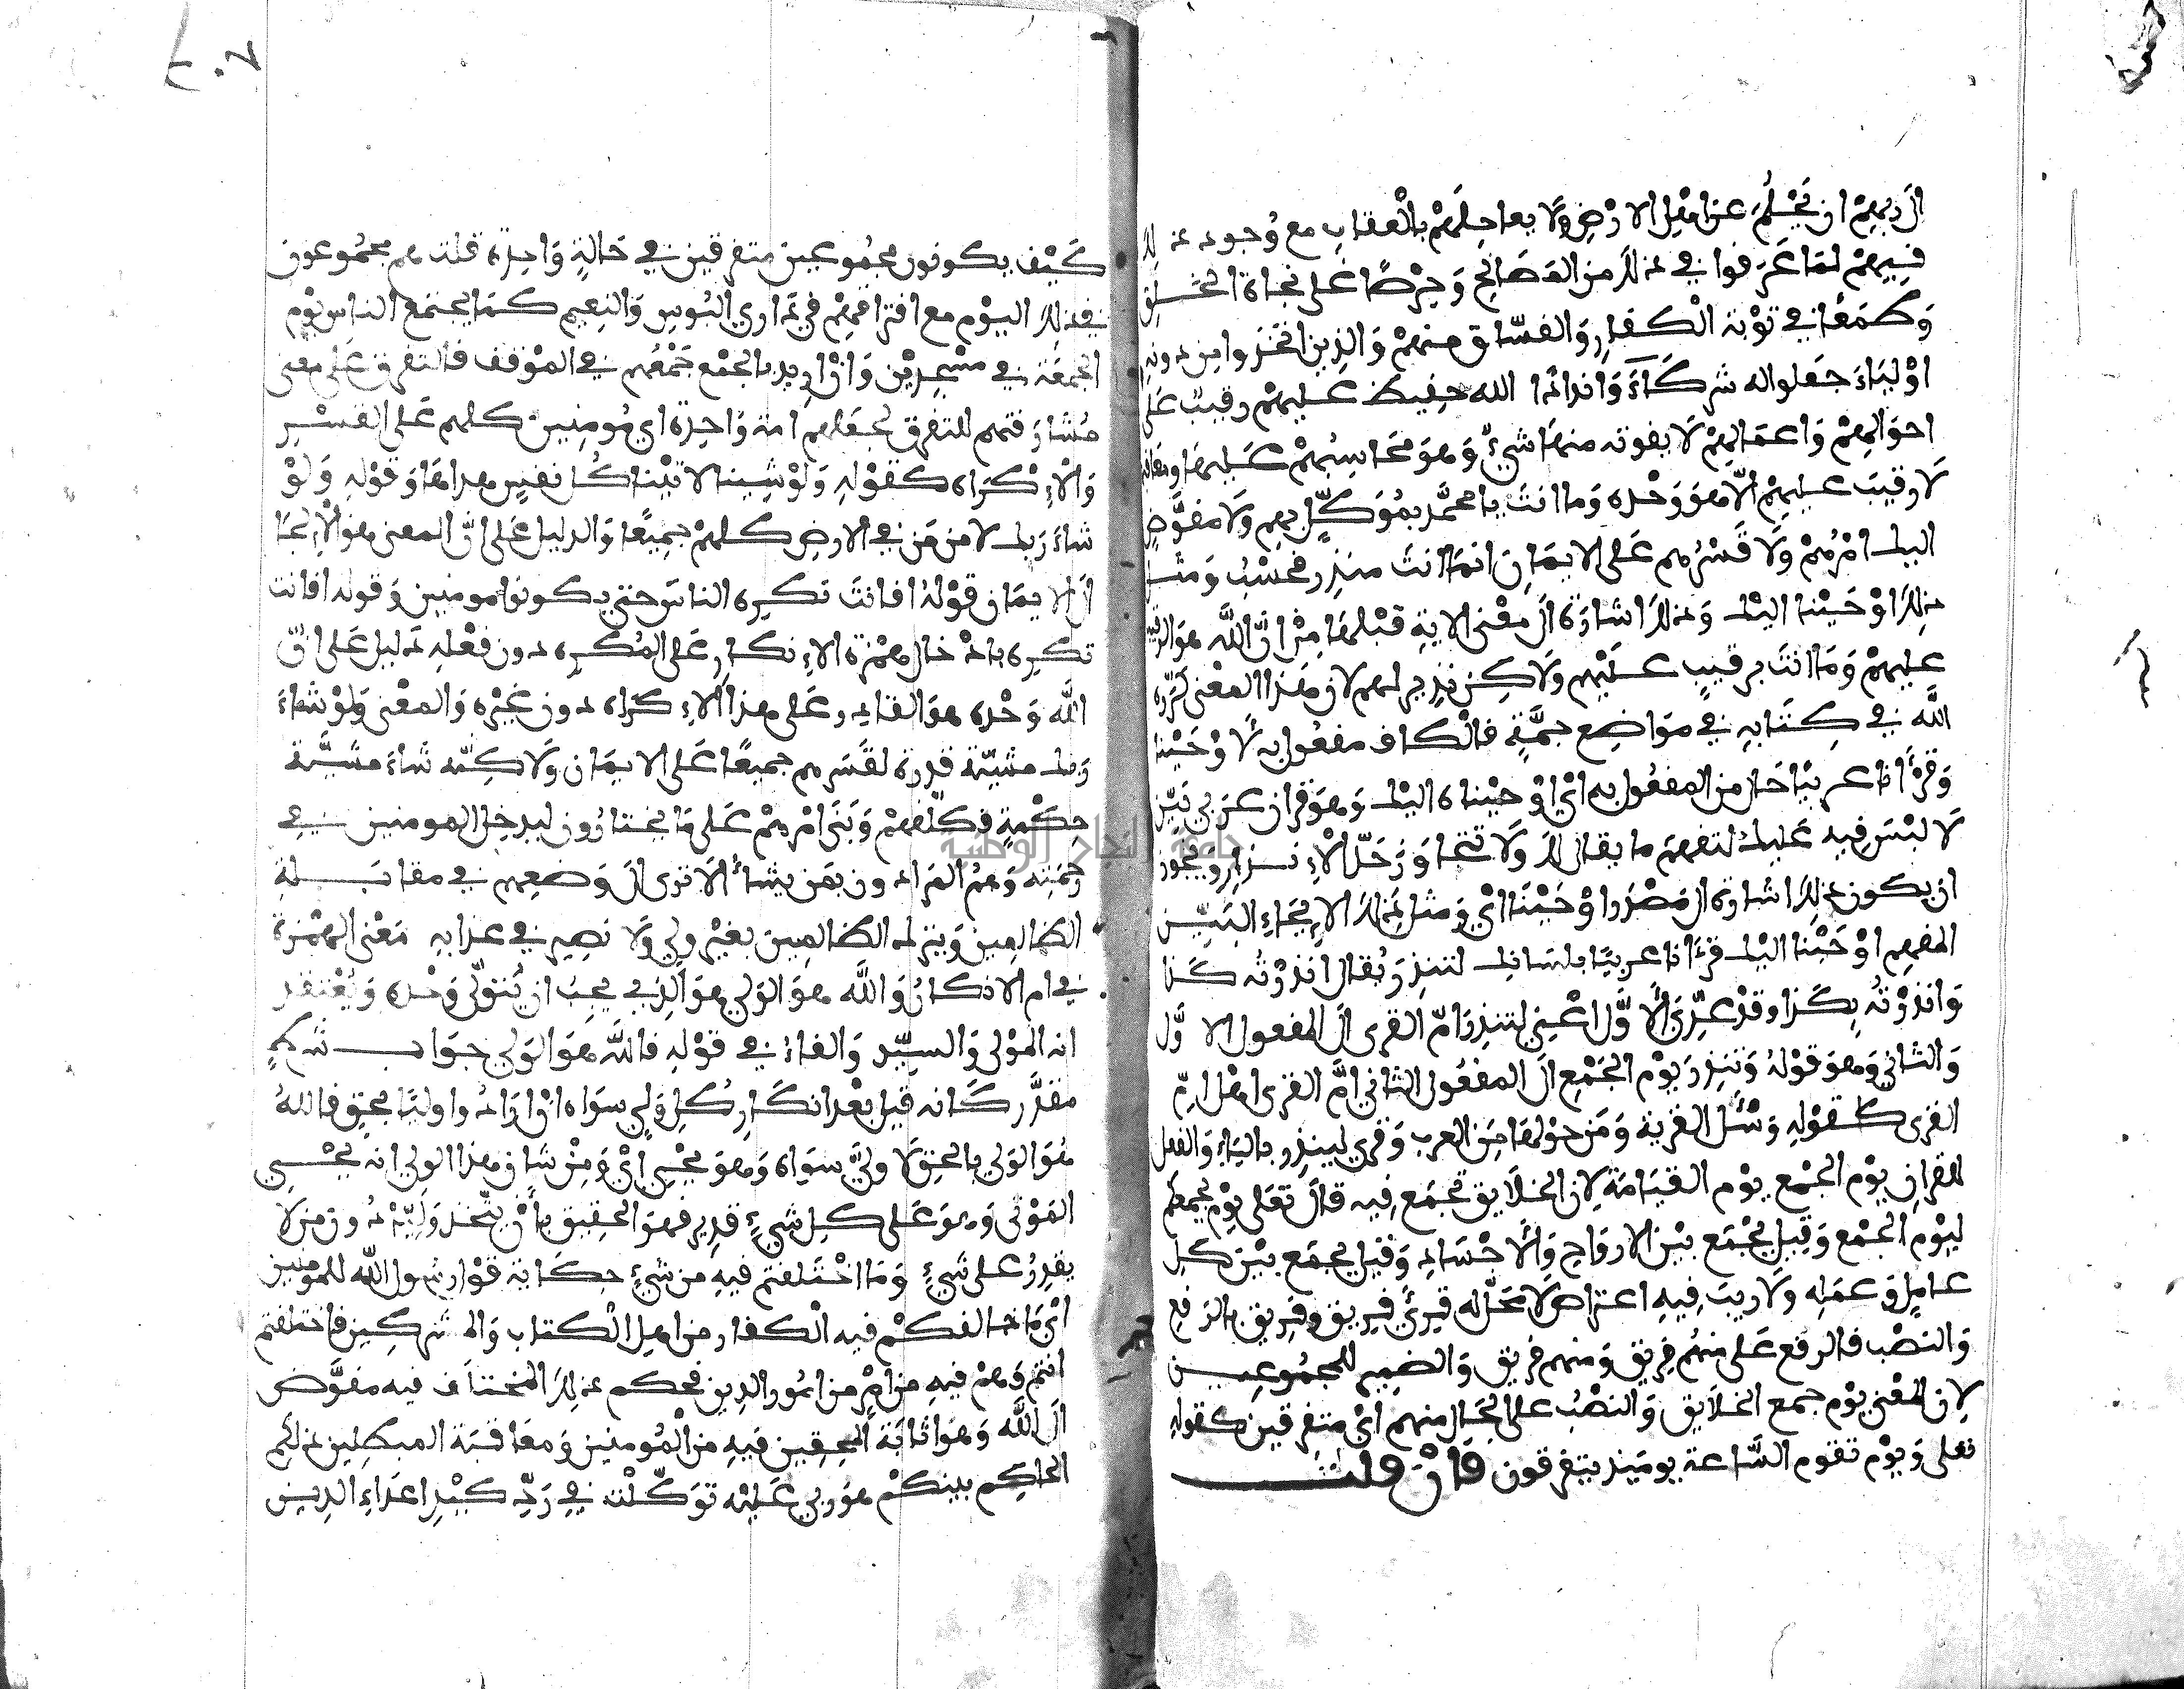 الى ربهم ان يحلم عن اهل الارض ولا يعاجلهم بالعقاب مع وجود ذلك
فيهم لما عرفوا في ذلك من المصالح وحرصا على نجاة الخلق
وطمعا في توبة الكفار والفساق منهم والذين اتخذوا من دونه
اولياء جعلوا له شركاء واندادا الله حفيظ عليهم رقيب على
احوالهم واعمالهم لا يفوته منها شيء وهو محاسبهم عليها ومعاقبهم
لا رقيب عليهم الا هو وحده وما انت يا محمد بموكل بهم ولا مفوض
اليك امرهم ولا قسرهم على الايمان انما انت منذر فحسب ومثل
ذلك اوحينا اليك وذلك اشارة الى معنى الاية قبلها من ان الله هو الرقيب
عليهم وما انت برقيب عليهم ولاكن نذير لهم لان هذا المعنى كرره
الله في كتابه في مواضع جمة فالكاف مفعول به لاوحينا
وقرءانا عربيا حال من المفعول به اي اوحيناه اليك وهو قران عربي بين
لا لبس فيه عليك لتفهم ما يقال لك ولا تتجاوز حد الانذار ويجوز
ان يكون ذلك اشارة الى مصدر اوحينا اي ومثل ذلك الايحاء البين
المفهم اوحينا اليك قرءانا عربيا بلسانك لتنذر يقال انذرته كذا
وانذرته بكذا وقد عدي الاول اعني لتنذر ام القرى الى المفعول الاول
والثاني وهو قوله وتنذر يوم الجمع الى المفعول الثاني ام القرى اهل ام
القرى كقوله وسئل القرية ومن حولها من العرب وقري لينذر بالياء والفعل
للقران يوم الجمع يوم القيامة لان الخلايق تجمع فيه قال تعلى يوم يجمعكم
ليوم الجمع وقيل يجمع بين الارواح والاجساد وقيل يجمع بين كل
عامل وعمله ولا ريب فيه اعتراض لا محل له قرئ فريق وفريق بالرفع
والنصب فالرفع على منهم فريق ومنهم فريق والضمير للمجموعين
لان المعنى يوم جمع الخلايق والنصب على الحال منهم اي متفرقين كقوله
تعلى ويوم تقوم الساعة يوميذ يتفرقون فان قلت
كيف يكونون مجموعين متفرقين في حالة واحدة قلت هم مجموعون
في ذلك اليوم مع افتراقهم في داري البوس والنعيم كما يجتمع الناس يوم
الجمعة في مسجدين وان اريد بالجمع جمعهم في الموقف فالتفرق على معنى
مشارفتهم للتفرق لجعلهم امة واحدة اي مومنين كلهم على القسر
والاكراه كقوله ولو شينا لاتينا كل نفس هداها وقوله ولو
شاء ربك لامن من في الارض كلهم جميعا والدليل على ان المعنى هو الالجا
الى الايمان قوله افانت تكره الناس حتى يكونوا مومنين وقوله افانت
تكره بادخال همزة الانكار على المكره دون فعله دليل على ان
الله وحده هو القادر على هذا الاكراه دون غيره والمعنى ولو شاء
ربك مشيئة قدرة لقسرهم جميعا على الايمان ولاكنه شاء مشيئة
حكمة فكلفهم وبنى امرهم على ما يختارون ليدخل المومنين في
رحمته وهم المراد ون بمن يشاء الا ترى الى وضعهم في مقابلة
الظالمين ويترك الظالمين بغير ولي ولا نصير في عذابه معنى الهمزة
في ام الانكار والله هو الولي هو الذي يجب ان يتولى وحده ويعتقد
انه المولى والسيد والفاء في قوله فالله هو الولي جواب شرط
مقدر كانه قيل بعد انكار كل ولي سواه ان ارادوا وليا بحق فالله
هو الولي بالحق لا ولي سواه وهو يحيي اي ومن شان هذا الولي انه يحيي
الموتى وهو على كل شيء قدير فهو الحقيق بان يتخذ وليا دون من لا
يقدر على شيء وما اختلفتم فيه من شيء حكاية قول رسول الله للمومنين
اي ما خالفكم فيه الكفار من اهل الكتاب والمشركين فاختلفتم
انتم وهم فيه من امر من امور الدين فحكم ذلك المختلف فيه مفوض
الى الله وهو اثابة المحقين فيه من المومنين ومعاقبة المبطلين ذلكم
الحاكم بينكم هو ربي عليه توكلت في رد كيد اعداء الدين